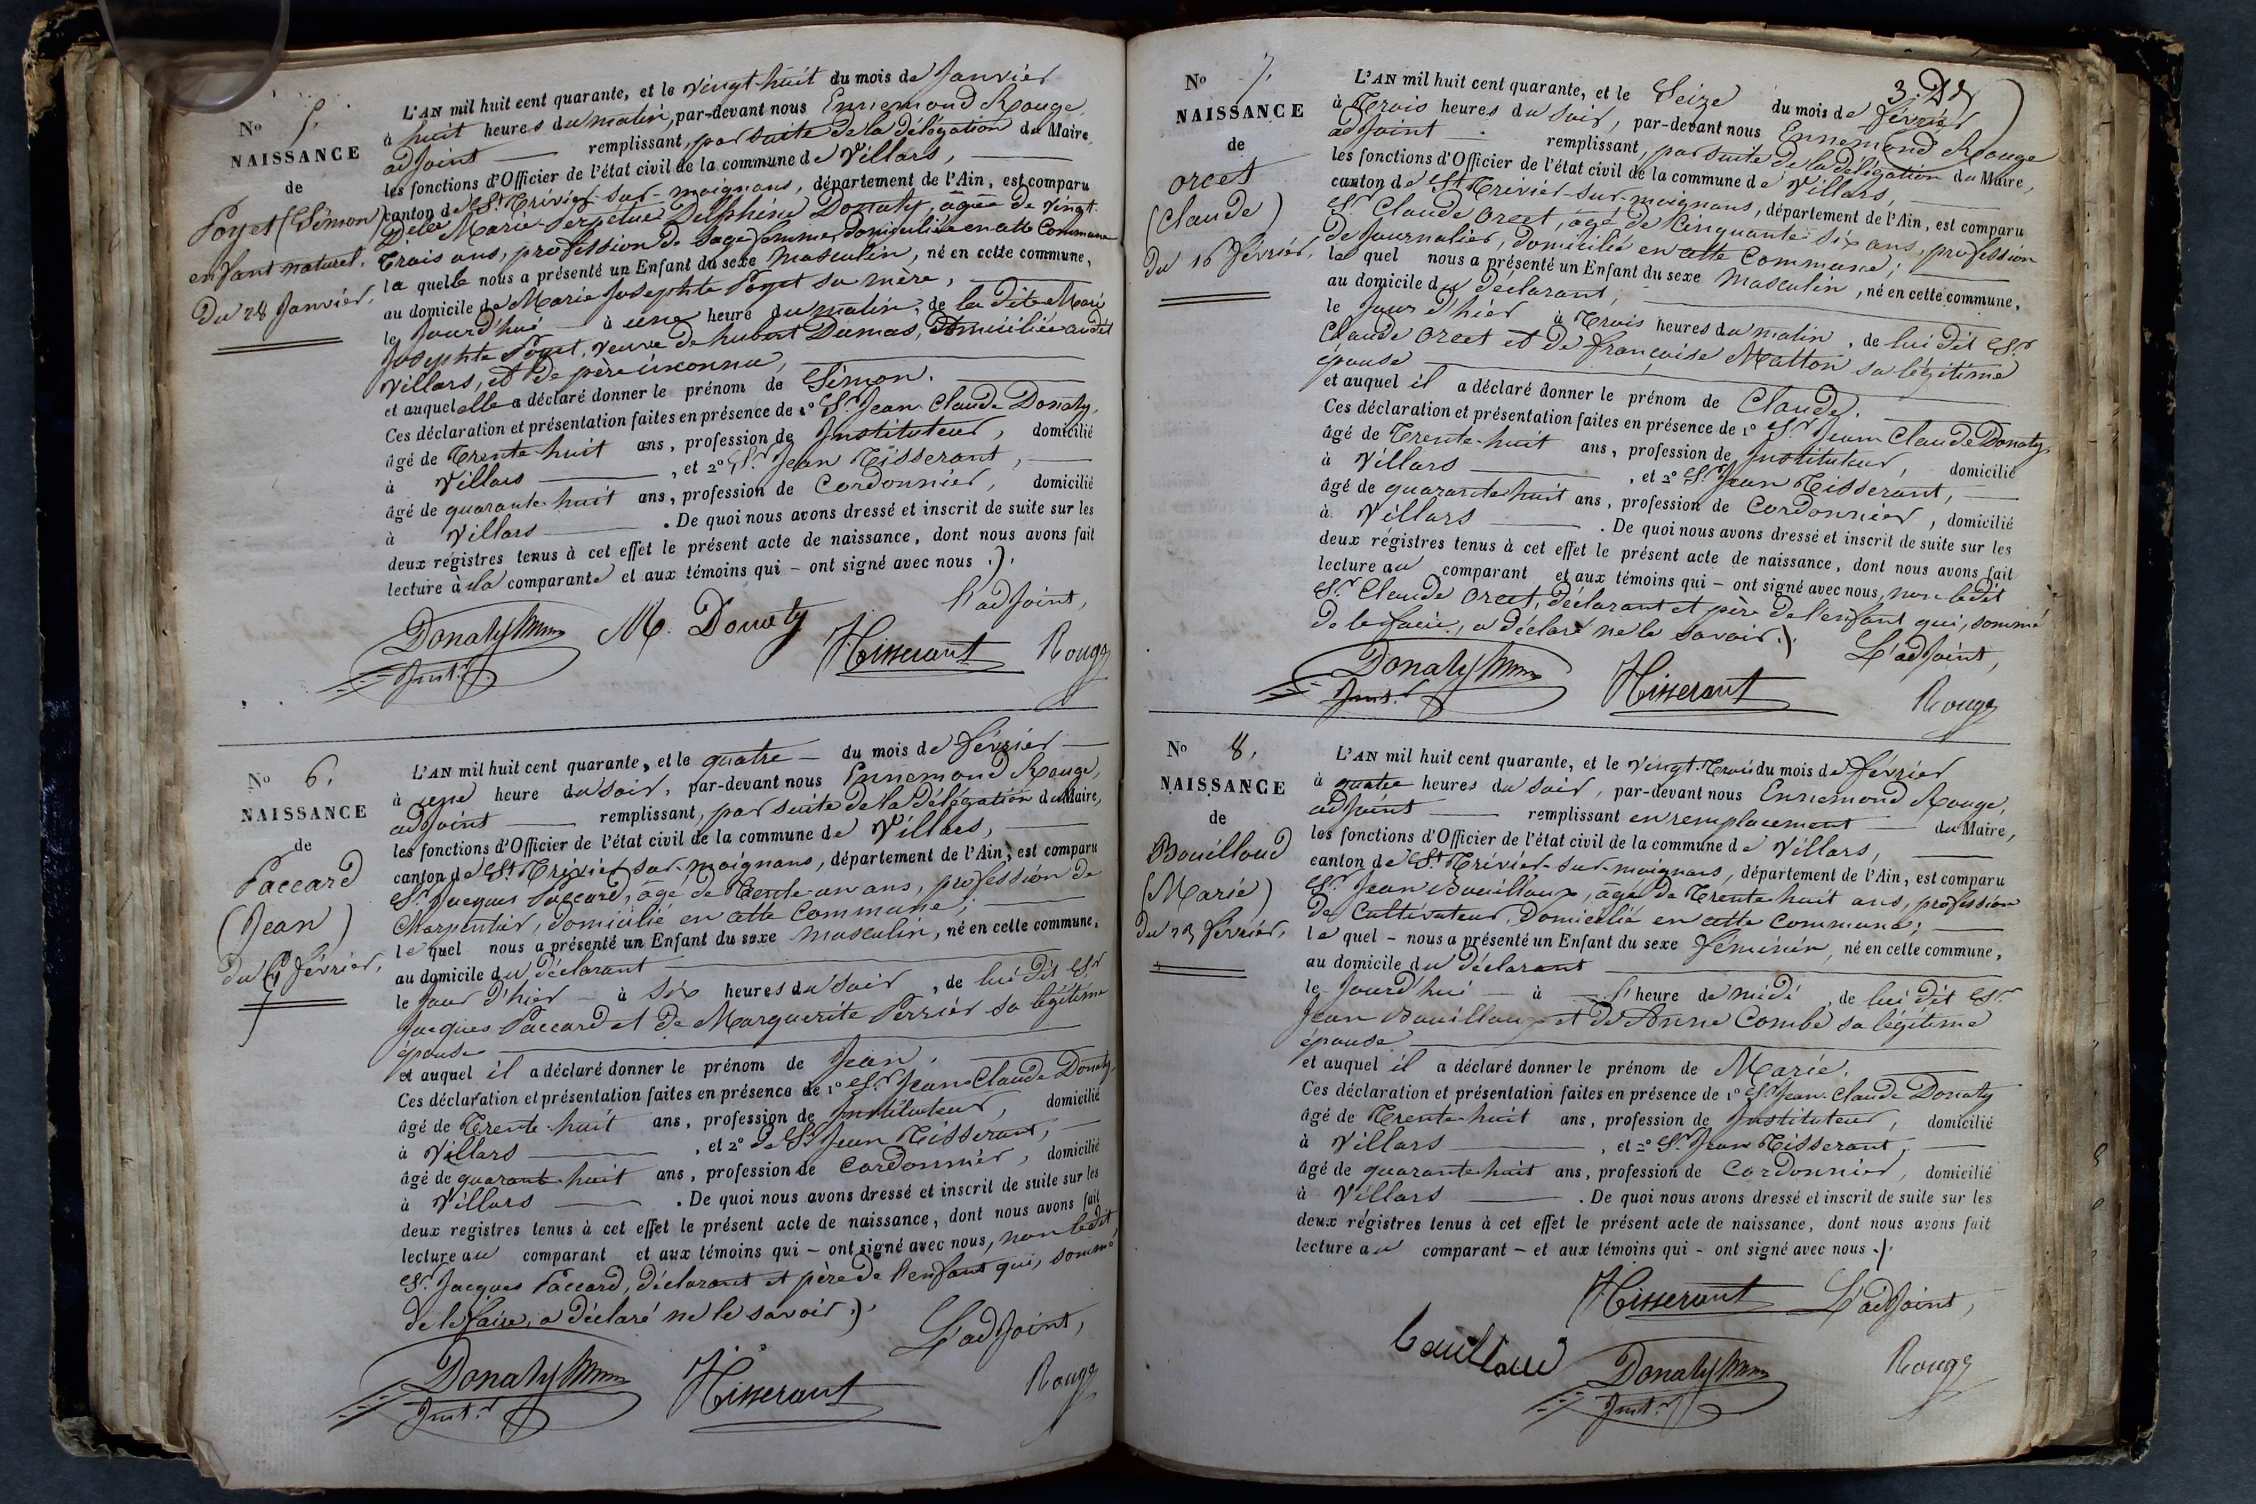 N° 5.
NAISSANCE
de
Poyet (Simon)
enfant naturel.
Du 28 Janvier.
L'AN mil huit cent quarante, et le vingt-huit du mois de Janvier
à huit heures du matin, par-devant nous Ennemond Rouge,
adjoint remplissant, par suite de la délégation du Maire,
les fonctions d'Officier de l'état civil de la commune de Villars,
canton de St Trivier-sur-moignans, département de l'Ain, est comparu
Delle Marie Perpetue Delphine Donaty, agée de vingt
Trois ans, profession de Sage femme, domiciliée en cette Commune
laquelle nous a présenté un Enfant du sexe masculin, né en cette commune,
au domicile de Marie Josephte Poyet sa mère,
le Jourd'hui à une heure du matin, de la dite Marie
Josephte Poyet, veuve de hubert Dumas, domiciliée audit
Villars, et de père inconnu,
et auquel elle a déclaré donner le prénom de Simon.
Ces déclaration et présentation faites en présence de 1° Sr. Jean Claude Donaty,
âgé de Trente-huit ans, profession de Instituteur, domicilié
à Villars, et 2° Sr. Jean Tisserant,
âgé de quarante-huit ans, profession de Cordonnier, domicilié
à Villars. De quoi nous avons dressé et inscrit de suite sur les
deux régistres tenus à cet effet le présent acte de naissance, dont nous avons fait
lecture à la comparante et aux témoins qui – ont signé avec nous ./.
l'adjoint,
Donaty
Inst.r
M. Donaty
Tisserant
Rouge
N° 6.
NAISSANCE
de
Paccard
(Jean)
du 4 février.
L'AN mil huit cent quarante, et le quatre – du mois de février
à une heure du soir, par-devant nous Ennemond Rouge,
adjoint remplissant, par suite de la délégation du Maire,
les fonctions d'Officier de l'état civil de la commune de Villars,
canton de St Trivier-sur-moignans, département de l'Ain, est comparu
Sr. Jacques Paccard, âgé de Trente-un ans, profession de
Charpentier, domicilié en cette Commune;
lequel nous a présenté un Enfant du sexe masculin, né en cette commune,
au domicile du déclarant
le Jour d'hier – à six heures du soir, de lui dit Sr
Jacques Paccard et de Marguerite Perrier sa légitime
épouse
et auquel il a déclaré donner le prénom de Jean.
Ces déclaration et présentation faites en présence de 1° Sr Jean-Claude Donaty,
âgé de Trente-huit ans, profession de Instituteur, domicilié
à Villars, et 2° de Sr Jean Tisserant,
âgé de quarante-huit ans, profession de Cordonnier, domicilié
à Villars. De quoi nous avons dressé et inscrit de suite sur les
deux registres tenus à cet effet le présent acte de naissance, dont nous avons fait
lecture au comparant et aux témoins qui – ont signé avec nous, non ledit
Sr. Jacques Paccard, déclarant et père de l'enfant qui, sommé
de le faire, a déclaré ne le savoir ./.
L'adjoint,
Donaty
Inst.r
Tisserant
Rouge
N° 7.
NAISSANCE
de
Orcet
(Claude)
du 16 février.
L'AN mil huit cent quarante, et le Seize du mois de février
à Trois heures du soir, par-devant nous Ennemond Rouge
adjoint remplissant, par suite de la délégation du Maire,
les fonctions d'Officier de l'état civil de la commune de Villars,
canton de St Trivier-sur-moignans, département de l'Ain, est comparu
Sr. Claude Orcet, âgé de Cinquante-six ans, profession
de Journalier, domicilié en cette Commune;
lequel nous a présenté un Enfant du sexe Masculin, né en cette commune,
au domicile du déclarant,
le Jour d'hier à Trois heures du matin, de lui dit Sr
Claude Orcet et de françoise Matton sa légitime
épouse
et auquel il a déclaré donner le prénom de Claude.
Ces déclaration et présentation faites en présence de 1° Sr Jean Claude Donaty,
âgé de Trente-huit ans, profession de Instituteur, domicilié
à Villars, et 2° Sr Jean Tisserant,
âgé de quarante-huit ans, profession de Cordonnier, domicilié
à Villars. De quoi nous avons dressé et inscrit de suite sur les
deux régistres tenus à cet effet le présent acte de naissance, dont nous avons fait
lecture au comparant et aux témoins qui – ont signé avec nous, non ledit
Sr. Claude Orcet, déclarant et père de l'enfant qui, sommé
de le faire, a déclaré ne le savoir ./.
L'adjoint,
Donaty
Inst.r
Tisserant
Rouge
N° 8.
NAISSANCE
de
Bouilloud
(Marie)
du 23 février.
L'AN mil huit cent quarante, et le vingt-Trois du mois de février
à quatre heures du soir, par-devant nous Ennemond Rouge,
adjoint remplissant en remplacement du Maire,
les fonctions d'Officier de l'état civil de la commune de Villars,
canton de St Trivier-sur-moignans, département de l'Ain, est comparu
Sr. Jean Bouilloux, âgé de Trente-huit ans, profession
de Cultivateur, domicilié en cette Commune;
lequel – nous a présenté un Enfant du sexe féminin, né en cette commune,
au domicile du déclarant
le Jourd'hui à l'heure de midi, de lui dit Sr
Jean Bouilloux et de Anne Combe sa légitime
épouse
et auquel il a déclaré donner le prénom de Marie.
Ces déclaration et présentation faites en présence de 1° Sr. Jean-Claude Donaty
âgé de Trente-huit ans, profession de Instituteur, domicilié
à Villars, et 2° Sr. Jean Tisserant,
âgé de quarante-huit ans, profession de Cordonnier, domicilié
à Villars. De quoi nous avons dressé et inscrit de suite sur les
deux régistres tenus à cet effet le présent acte de naissance, dont nous avons fait
lecture au comparant – et aux témoins qui – ont signé avec nous ./.
Tisserant
L'adjoint,
bouilloud
Donaty
Inst.r
Rouge